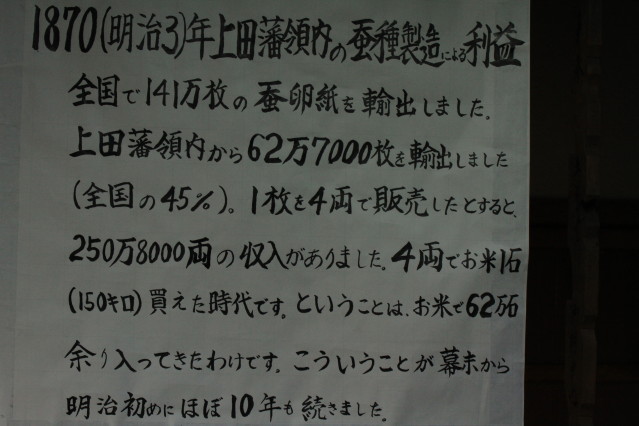 1870(明治3)年上田藩領内の蚕種製造による利益
全国で141万枚の蚕卵紙を輸出しました。
上田藩領内から62万7000枚を輸出しました
(全国の45%)。1枚を4両で販売したとすると、
250万8000両の収入がありました。4両でお米1石
(150キロ)買えた時代です。ということは、お米で62万石
余り入ってきたわけです。こういうことが幕末から
明治初めにほぼ10年も続きました。